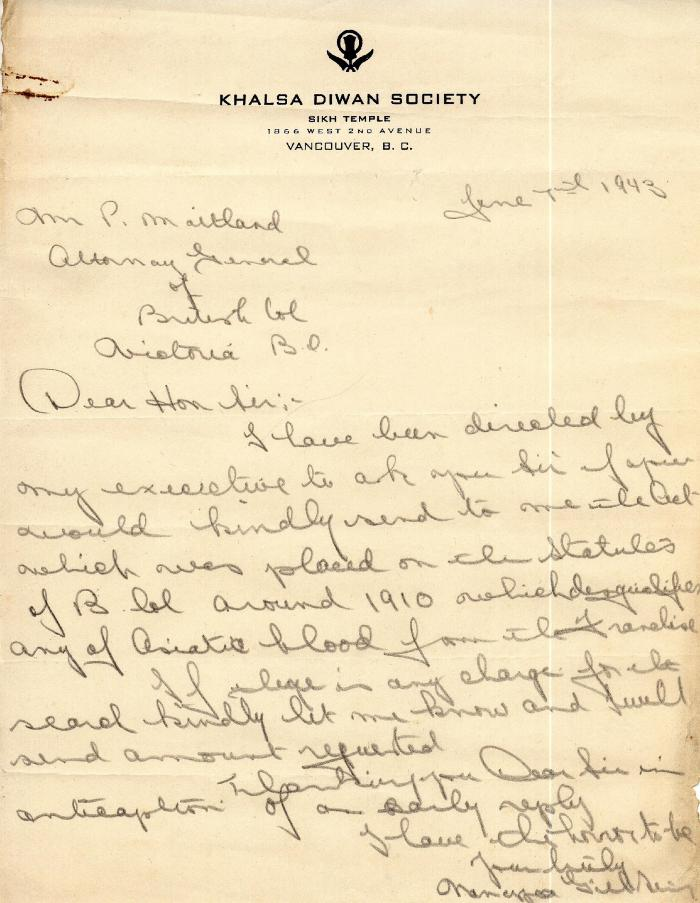 KHALSA DIWAN SOCIETY
SIKH TEMPLE
1866 WEST 2ND AVENUE
VANCOUVER, B. C.
June 7th 1943
Mr P. Maitland
Attornay General
of
British Col
Victoria B.C.
Dear Hon Sir;-
I have been directed by
my executive to ask you Sir if you
would kindly send to me the Act
which was placed on the Statutes
of B Col around 1910 which disqualifies
any of Asiatic blood from the Franchise
If there is any charge for the
search kindly let me know and I will
send amount requested
Thanking you Dear Sir in
anticaption of an early reply
I have the honor to be
Yours truly